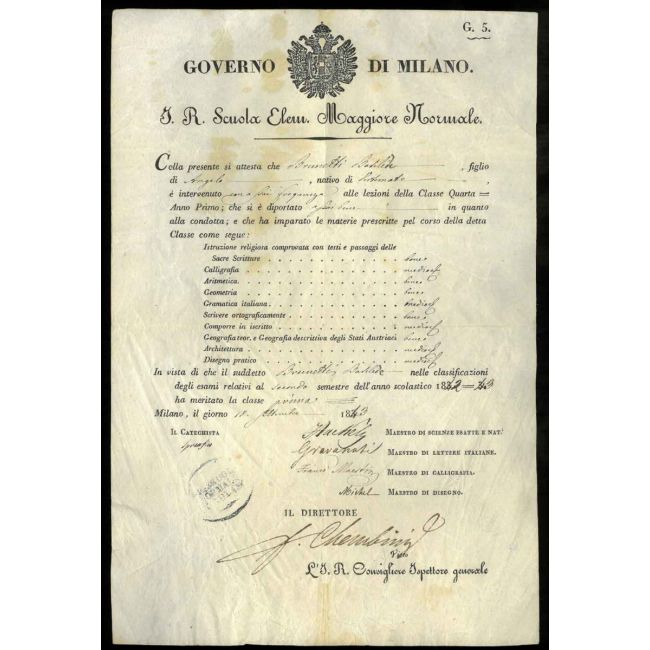 G. 5.
GOVERNO DI MILANO.
I. R. Scuola Elem. Maggiore Normale.
Colla presente si attesta che Brunetti , figlio
di Angelo , nativo di
è intervenuto con alle lezioni della Classe Quarta
Anno Primo; che si è diportato in quanto
alla condotta; e che ha imparato le materie prescritte pel corso della detta
Classe come segue:
Istruzione religiosa comprovata con testi e passaggi delle
Sacre Scritture . . . . . . . . . . . bene
Calligrafia . . . . . . . . . . . medioc.
Aritmetica. . . . . . . . . . . bene
Geometria . . . . . . . . . . . bene
Gramatica italiana. . . . . . . . . . . medioc.
Scrivere ortograficamente . . . . . . . . . bene
Comporre in iscritto . . . . . . . . . . . medioc.
Geografia teor. e Geografia descrittiva degli Stati Austriaci bene
Architettura . . . . . . . . . . . medioc.
Disegno pratico . . . . . . . . . . . medioc.
In vista di che il suddetto Brunetti nelle classificazioni
degli esami relativi al secondo semestre dell'anno scolastico 1842=43
ha meritato la classe prima
Milano, il giorno 1843
IL CATECHISTA
MAESTRO DI SCIENZE ESATTE E NAT.
MAESTRO DI LETTERE ITALIANE.
MAESTRO DI CALLIGRAFIA.
Michel MAESTRO DI DISEGNO.
IL DIRETTORE
Cherubini
Visto
L'I. R. Consigliere Ispettore generale